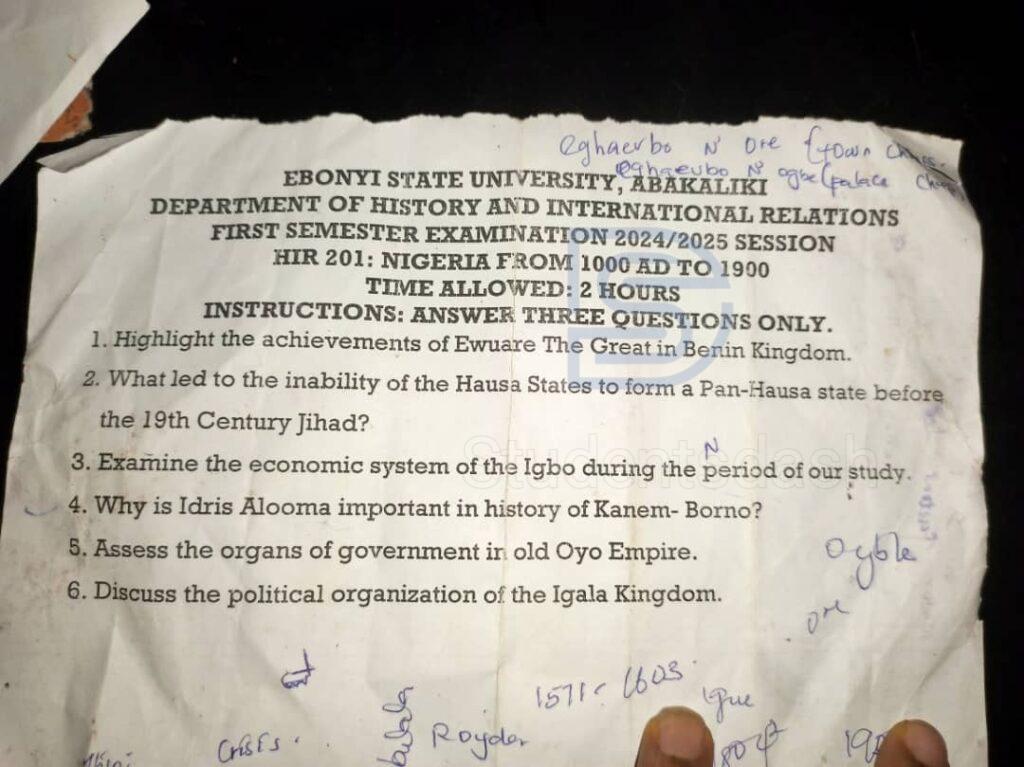 eghaevbo N' Ore (Town Chiefs.
eghaevbo N' ogbe (palace Chiefs
EBONYI STATE UNIVERSITY, ABAKALIKI
DEPARTMENT OF HISTORY AND INTERNATIONAL RELATIONS
FIRST SEMESTER EXAMINATION 2024/2025 SESSION
HIR 201: NIGERIA FROM 1000 AD TO 1900
TIME ALLOWED: 2 HOURS
INSTRUCTIONS: ANSWER THREE QUESTIONS ONLY.
1. Highlight the achievements of Ewuare The Great in Benin Kingdom.
2. What led to the inability of the Hausa States to form a Pan-Hausa state before
the 19th Century Jihad?
N
3. Examine the economic system of the Igbo during the period of our study.
Studentsdash
4. Why is Idris Alooma important in history of Kanem- Borno?
5. Assess the organs of government in old Oyo Empire.
6. Discuss the political organization of the Igala Kingdom.
ore
1571 - 1603
Igue
Crisis.
bulala
1804